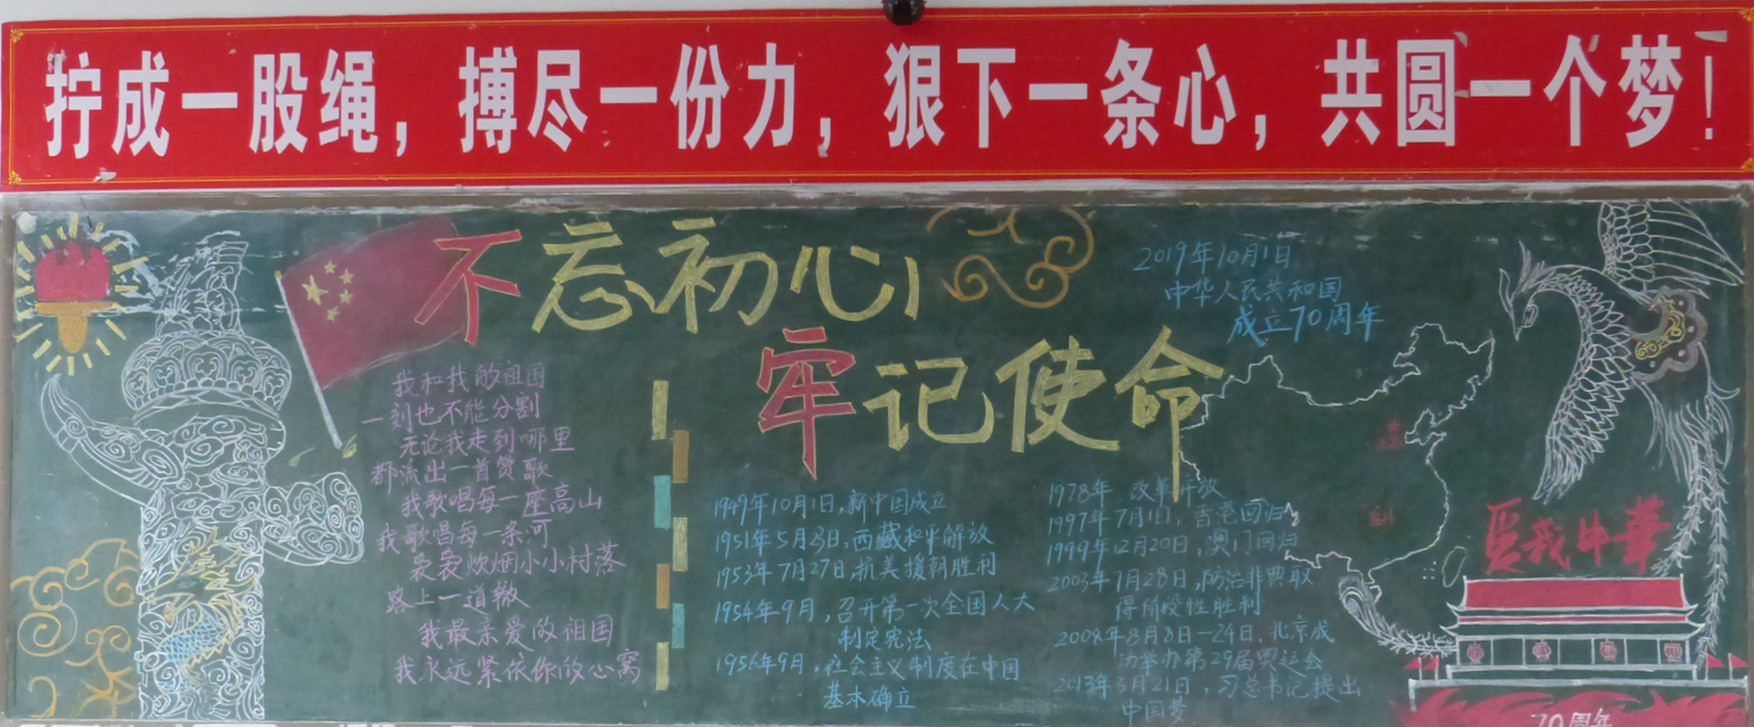 拧成一股绳，搏尽一份力，狠下一条心，共圆一个梦！
不忘初心
牢记使命
2019年10月1日
中华人民共和国
成立70周年
我和我的祖国
一刻也不能分割
无论我走到哪里
都流出一首赞歌
我歌唱每一座高山
我歌唱每一条河
袅袅炊烟小小村落
路上一道辙
我最亲爱的祖国
我永远紧依你的心窝
1949年10月1日,新中国成立
1951年5月23日,西藏和平解放
1953年7月27日,抗美援朝胜利
1954年9月,召开第一次全国人大
制定宪法
1956年9月,社会主义制度在中国
基本确立
1978年,改革开放
1997年7月1日,香港回归
1999年12月20日,澳门回归
2003年7月28日,防治非典取
得阶段性胜利
2008年8月8日-24日,北京成
功举办第29届奥运会
2013年3月21日,习总书记提出
中国梦
我中華
70周年